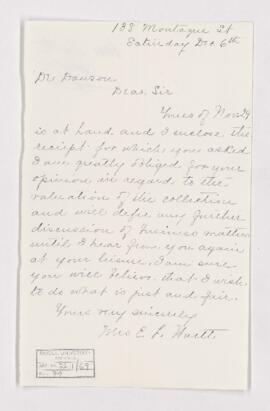 138 Montague St
Saturday Dec. 6th
Dr. Dawson
Dear Sir
Yours of Nov.
is at hand and I enclose the
receipt for which you asked
I am greatly obliged for your
opinion in regard to the
valuation of the collection
and will defer any further
discussion of business matters
until I hear from you again
at your leisure. I am sure
you will believe that I wish
to do what is just and fair.
Yours very sincerely
Mrs E. L.
McGILL UNIVERSITY
ARCHIVES